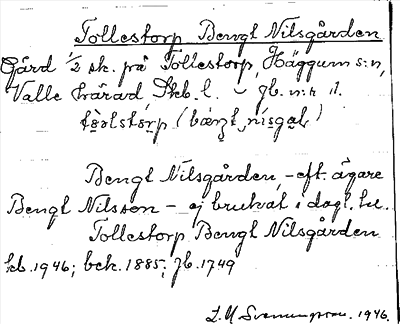 Tollestorp Bengt Nilsgården
Gård 1/2 sk. på Tollestorp, Häggum s:n,
Valle härad, Skb. l. – jb. n:r 11.
(bæŋt nisgaḷ)
Bengt Nilsgården, – eft. ägare
Bengt Nilsson – ej brukat i dagl. tal.
Tollestorp Bengt Nilsgården
kb. 1946; bek. 1885; jb. 1749
1946.